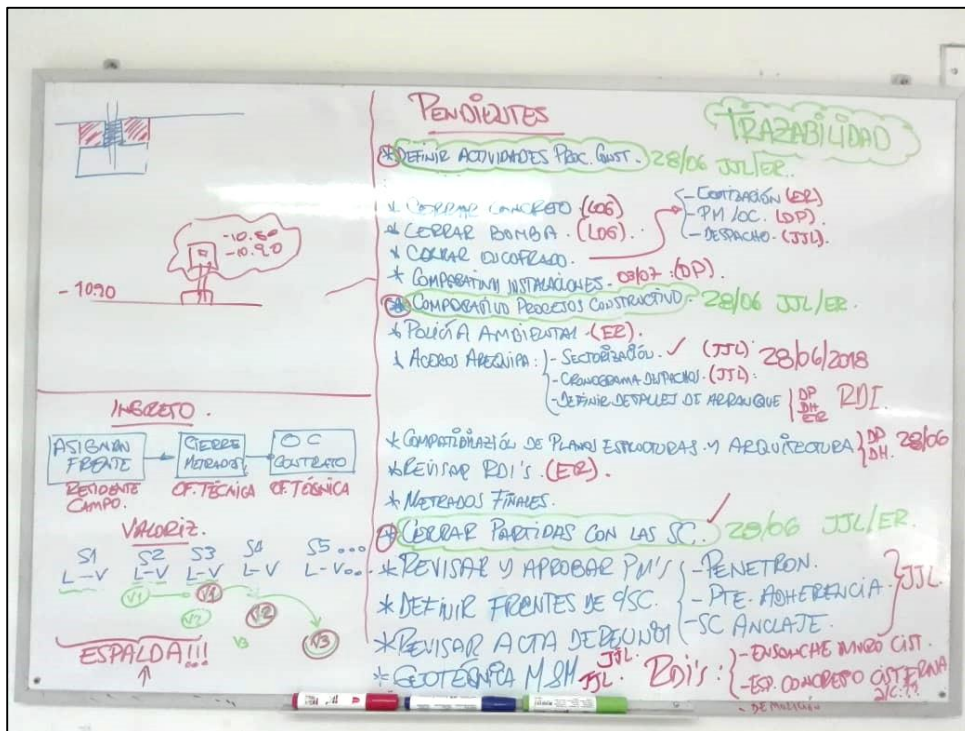 -10.90
-10.90
INGRETO.
ASIGNAN FRENTE
CIERRE METRADOS
OC CONTRATO
RESIDENTE CAMPO.
OF. TÉCNICA
OF. TÉCNICA
VALORIZ.
S1 S2 S3 S4 S5 ...
L-V L-V L-V L-V L-V...
V1 V1
V2 V2
V3 V3
ESPALDA!!!
PENDIENTES
TRAZABILIDAD
* DEFINIR ACTIVIDADES PROC. CONST. 28/06 JJL/ER.
* CERRAR CONCRETO (LOG)
* CERRAR BOMBA. (LOG).
* CERRAR ENCOFRADO.
- COTIZACIÓN (ER)
- PM/OC. (DP)
- DESPACHO. (JJL).
* COMPARATIVO INSTALACIONES. 03/07: (DP).
* COMPARATIVO PROCESOS CONSTRUCTIVO - 28/06 JJL/ER.
* POLICÍA AMBIENTAL (ER).
* ACEROS AREQUIPA: - SECTORIZACIÓN. ✓ (JJL) 28/06/2018
- CRONOGRAMA DESPACHOS. (JJL).
- DEFINIR DETALLES DE ARRANQUE DP DH ER RDI.
* COMPATIBILIZACIÓN DE PLANOS ESTRUCTURAS Y ARQUITECTURA DP DH. 28/06
* REVISAR RDI'S. (ER).
* METRADOS FINALES.
* CERRAR PARTIDAS CON LAS SC. ✓ 28/06 JJL/ER.
* REVISAR Y APROBAR PM'S - PENETRON.
- PTE. ADHERENCIA.
- SC ANCLAJE.
JJL
* DEFINIR FRENTES DE C/SC.
* REVISAR ACTA DE REUNIÓN JJL.
* GEOTÉCNICA MSM JJL.
RDI's: - ENSANCHE MURO CIST.
- ESP. CONCRETO CISTERNA
- DEMOLICIÓN